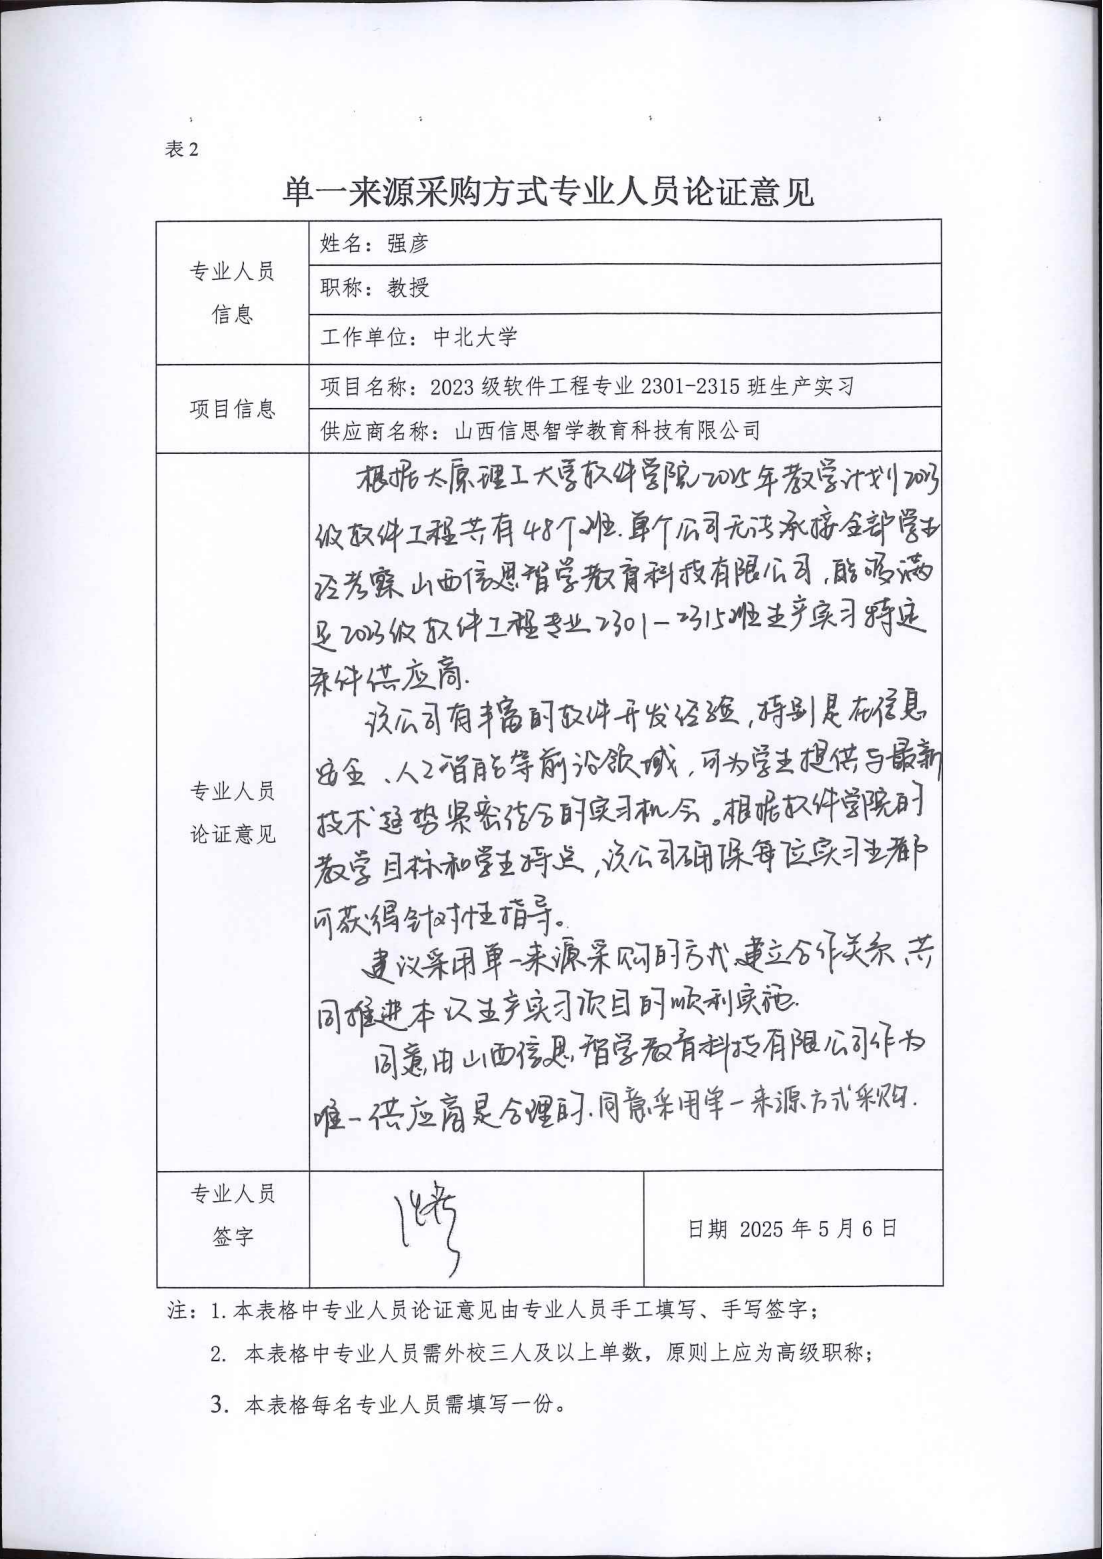 表2
单一来源采购方式专业人员论证意见
专业人员
信息
姓名：强彦
职称：教授
工作单位：中北大学
项目信息
项目名称：2023级软件工程专业2301-2315班生产实习
供应商名称：山西信思智学教育科技有限公司
专业人员
论证意见
根据太原理工大学软件学院2025年教学计划2023
级软件工程共有48个班.单个公司无法承接全部学生
经考察山西信思智学教育科技有限公司,能够满
足2023级软件工程专业2301-2315班生产实习特定
条件供应商.
该公司有丰富的软件开发经验,特别是在信息
安全、人工智能等前沿领域,可为学生提供与最新
技术趋势紧密结合的实习机会。根据软件学院的
教学目标和学生特点,该公司确保每位实习生都
可获得针对性指导。
建议采用单一来源采购的方式建立合作关系,共
同推进本次生产实习项目的顺利实施.
同意由山西信思智学教育科技有限公司作为
唯一供应商是合理的.同意采用单一来源方式采购.
专业人员
签字
日期 2025年5月6日
注：1.本表格中专业人员论证意见由专业人员手工填写、手写签字；
2. 本表格中专业人员需外校三人及以上单数，原则上应为高级职称；
3. 本表格每名专业人员需填写一份。